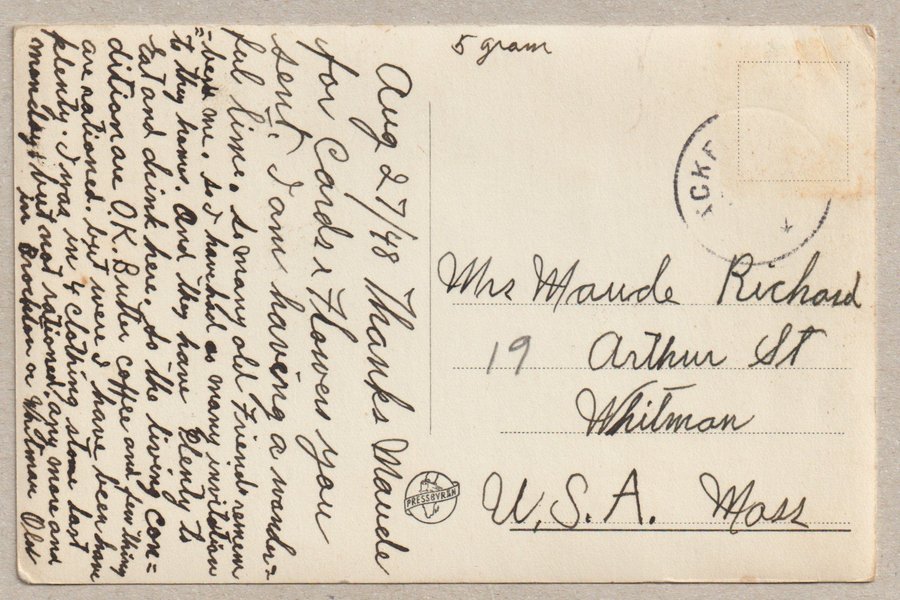 Aug 27/48 Thanks Maude
for Cards & Flowers you
sent. I am having a wonder=
ful time. so many old Friends remem
=bers me. so I have had as many invitation
to they homes. And they have Plenty to
Eat and drink here. so the living Con=
dition are O.K. Butter coffee and few thing
are rationed. but were I have been have
plenty. I was in 4 clothing stores last
monday, but not rationed any more and
in Brockton or Whitman Old
5 gram
ACKE
Mrs Maude Richard
19 Arthur St
Whitman
U.S.A. Mass
PRESSBYRÅN